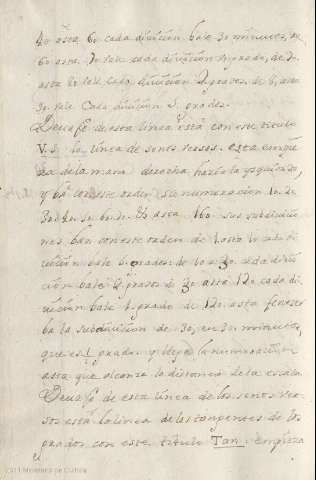 40 asta 60 cada diuision bale 30 minutos, de
60 asta 70 bale cada diuision un grado, de 70
asta 80 bale cada diuision 2 grados. de 80 asta
90 bale cada diuision 5. grados.
Deuaxo de esta linea está con este titulo
V.S. la linea de senos versos. esta empie
za de la mano derecha hazia la ysquierda,
y ba con este orden su numeracion 10. 20.
30. 40. 50. 60. 70. asta 160 sus subdiuisio
nes ban con este orden de 1 asta 10 cada di
uision bale grados: de 10 a 30 cada diui
cion bale 2 grados de 30 asta 120 cada di
uision bale 1. grado de 120 asta fenecer
ba la subdiuicion de 30, en 30 minutos,
que es ½ grado. y llega la numeracion
asta que alcanza la distancia de la escala
Deuaxo de esta linea de los senos ver
sos está la linea de los tangentes de los
grados con este titulo Tan. empieza
2011 Ministerio de Cultura